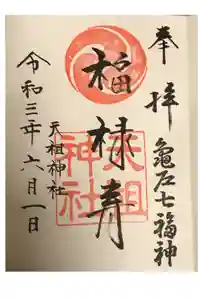 奉拝
亀戸七福神
福禄寿
天祖神社
天祖神社
令和三年六月一日